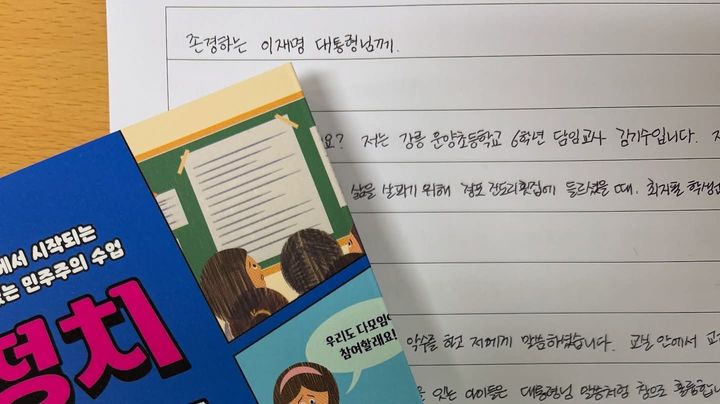 존경하는 이재명 대통령님께.
요? 저는 강릉 운양초등학교 6학년 담임교사 김기수입니다.
삶을 살피기 위해 경포 진도리횟집에 들르셨을 때. 최지필
악수를 하고 저에게 말씀하셨습니다. 교실 안에서
있는 아이들은 대통령님 말씀처럼 참으로 훌륭합니
에서 시작되는
있는 민주주의 수업
정치
우리도 다모임에
참여할래요!